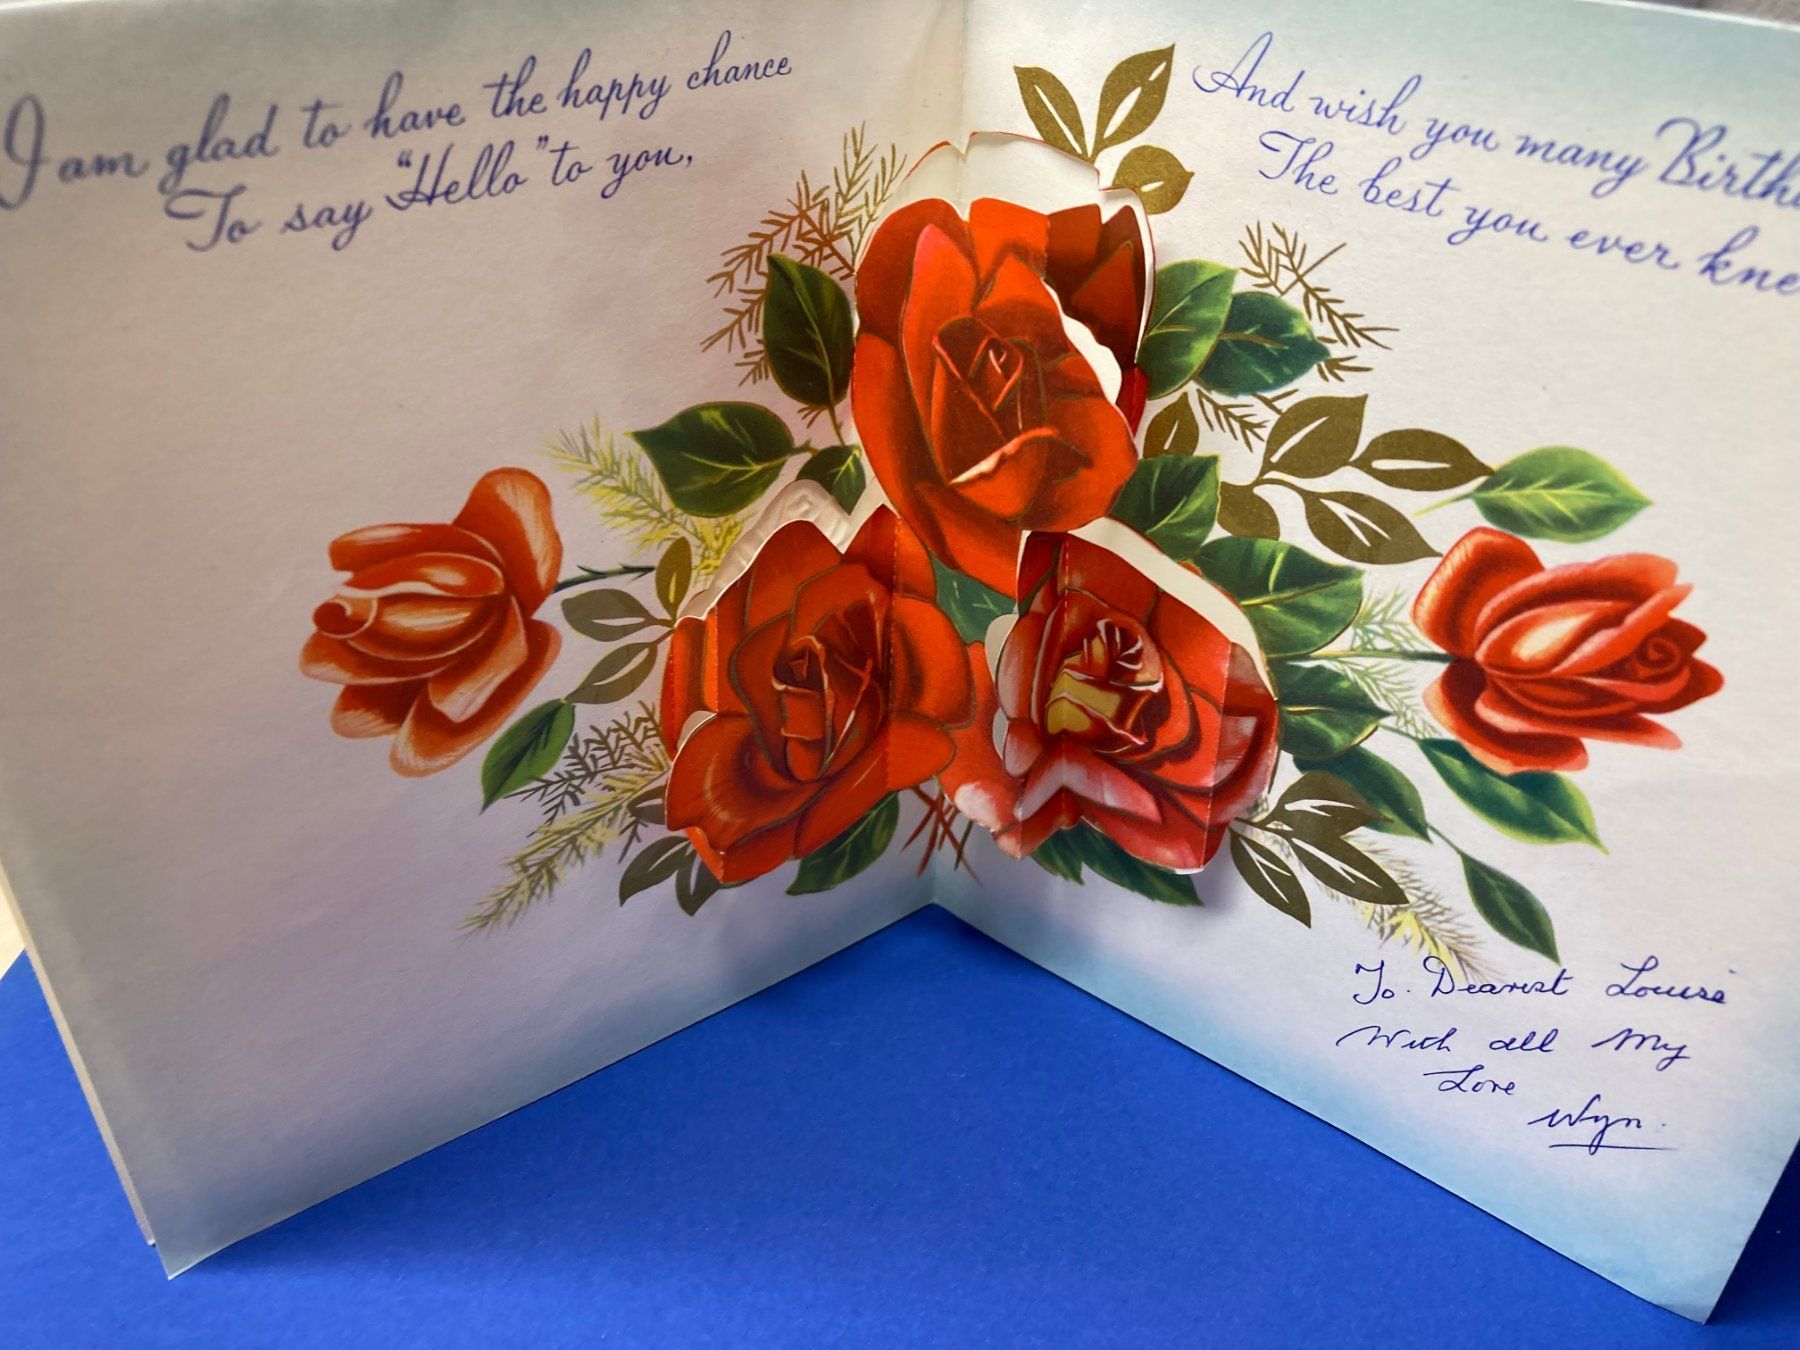 I am glad to have the happy chance
To say "Hello" to you,
And wish you many Birthd
The best you ever kne
To. Dearest Louise
With all My
Love
Wyn.